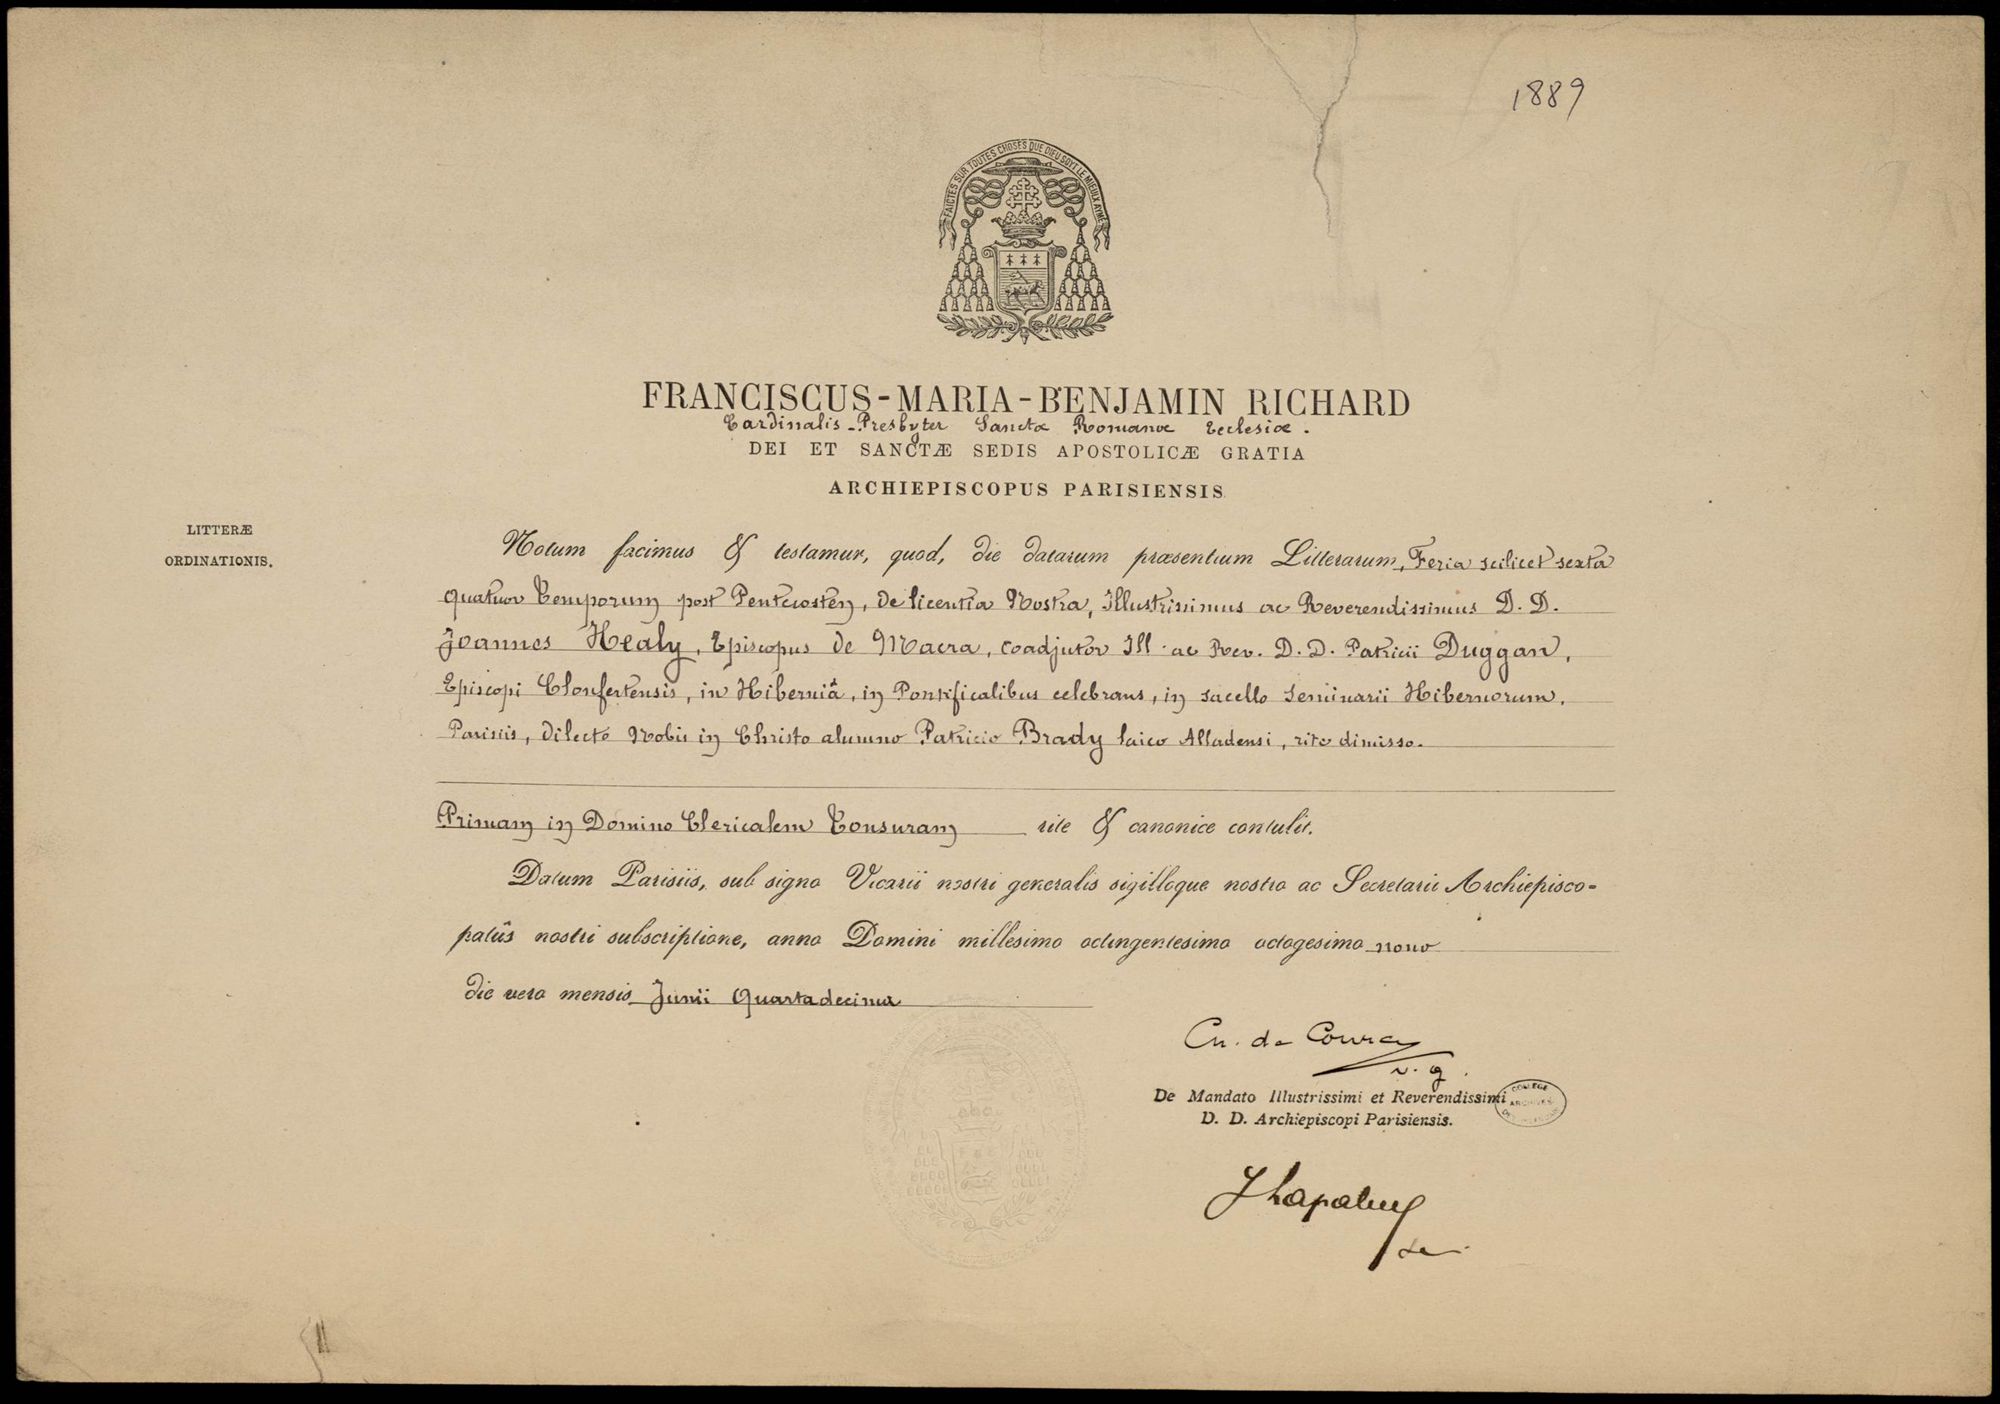 1889
FAICTES SUR TOUTES CHOSES QUE DIEU SOYT LE MIEULX AYMÉ
FRANCISCUS-MARIA-BENJAMIN RICHARD
Cardinalis-Presbyter Sanctæ Romanæ Ecclesiæ.
DEI ET SANCTÆ SEDIS APOSTOLICÆ GRATIA
ARCHIEPISCOPUS PARISIENSIS
LITTERÆ
ORDINATIONIS.
Notum facimus & testamur, quod, die datarum præsentium Litterarum, Feria scilicet sexta
quatuor Temporum post Pentecosten, de licentia Nostra, Illustrissimus ac Reverendissimus D. D.
Joannes Healy, Episcopus de Macra, coadjutor Ill. ac Rev. D. D. Patricii Duggan,
Episcopi Clonfertensis, in Hiberniâ, in Pontificalibus celebrans, in sacello Seminarii Hibernorum,
Parisiis, dilecto Nobis in Christo alumno Patricio Brady laico Alladensi, rite dimisso.
Primam in Domino Clericalem Tonsuram rite & canonice contulit.
Datum Parisiis, sub signo Vicarii nostri generalis sigilloque nostro ac Secretarii Archiepisco-
patûs nostri subscriptione, anno Domini millesimo octingentesimo octogesimo nono
die vero mensis Junii Quartadecima
de Courcy
v. g.
De Mandato Illustrissimi et Reverendissimi
D. D. Archiepiscopi Parisiensis.
COLLEGE
ARCHIVES